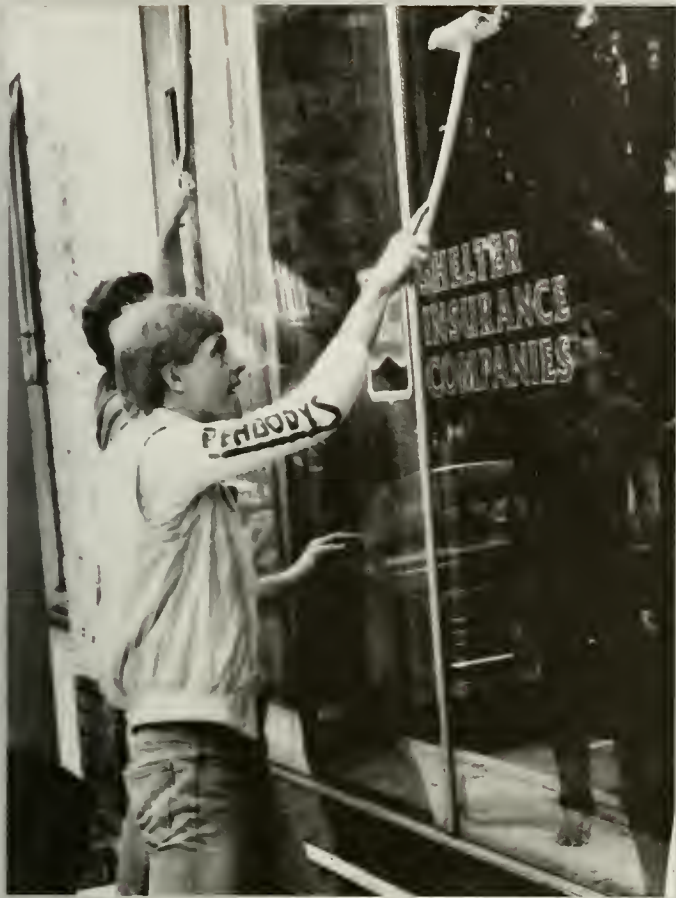 SHELTER
INSURANCE
COMPANIES
PEABODYS